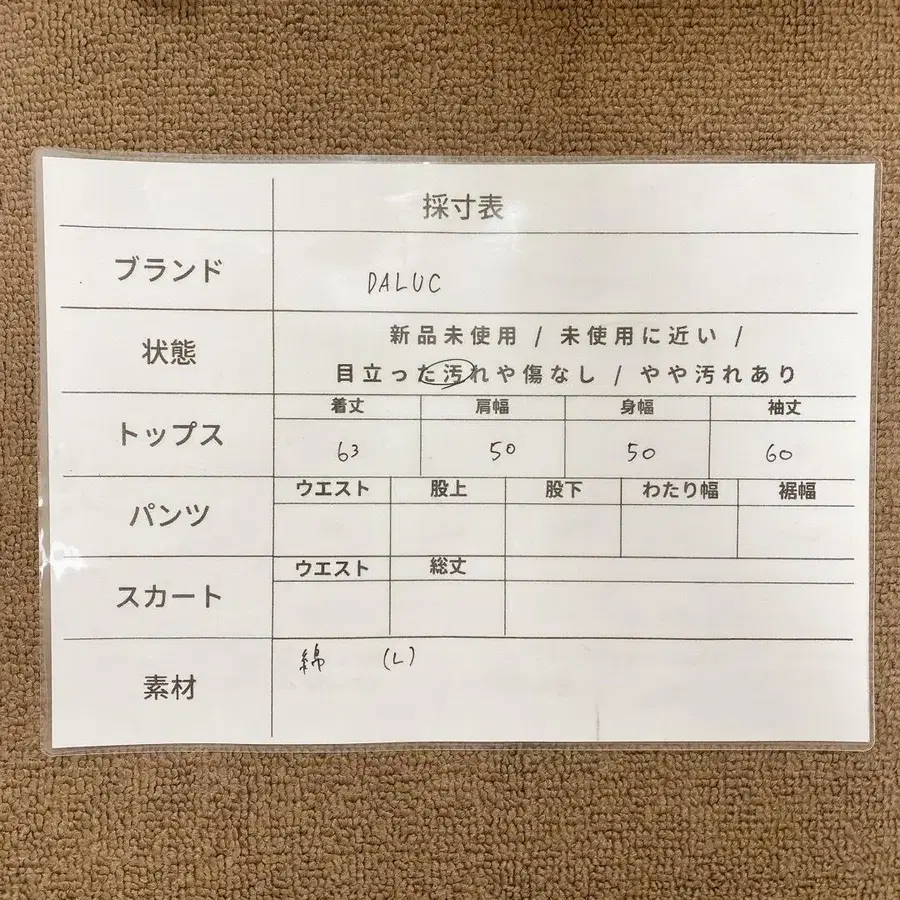 採寸表
ブランド DALUC
状態 新品未使用 / 未使用に近い /
目立った汚れや傷なし / やや汚れあり
トップス 着丈 肩幅 身幅 袖丈
63 50 50 60
パンツ ウエスト 股上 股下 わたり幅 裾幅
スカート ウエスト 総丈
素材 綿 (L)